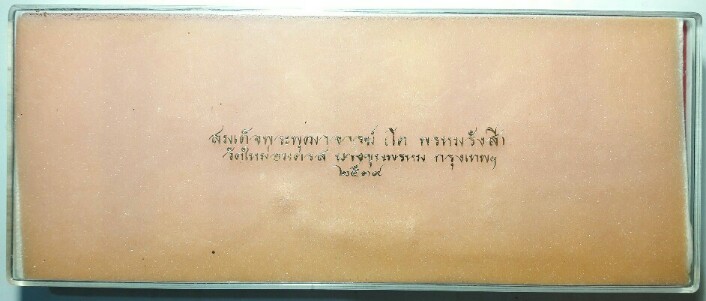 สมเด็จพระพุฒาจารย์ โต พรหมรังสี
วัดใหม่อมตรส บางขุนพรหม กรุงเทพฯ
๒๕๓๙